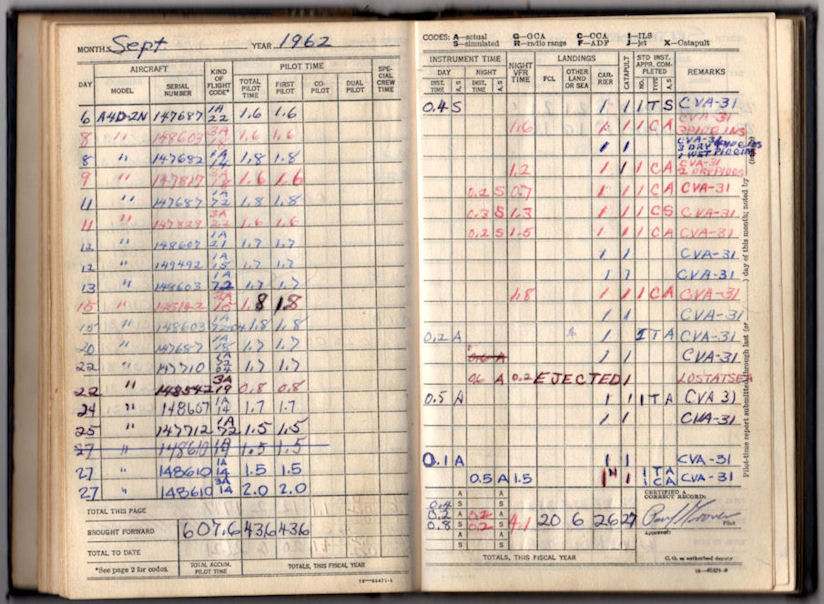 MONTH Sept YEAR 1962
DAY AIRCRAFT KIND OF FLIGHT CODE* PILOT TIME SPECIAL CREW TIME
MODEL SERIAL NUMBER TOTAL PILOT TIME FIRST PILOT CO-PILOT DUAL PILOT
6 A4D-2N 147687 1A 22 1.6 1.6
8 " 148609 3A 1.6 1.6
8 " 147682 1A 1.8 1.8
9 " 147817 1.6 1.6
11 " 147687 1A 72 1.8 1.8
11 " 147828 3A 22 1.6 1.6
12 " 148607 1A 21 1.7 1.7
12 " 149492 1A 1.7 1.7
13 " 148603 1A 72 1.7 1.7
15 " 3A 1.8 1.8
15 " 148603 1.8 1.8
20 " 147687 1A 1.7 1.7
22 " 147710 1A 1.7 1.7
22 " 148542 3A 19 0.8 0.8
24 " 148607 1A 14 1.7 1.7
25 " 147712 1A 72 1.5 1.5
27 " 148610 1A 14 1.5 1.5
27 " 148610 1A 14 1.5 1.5
27 " 148610 3A 14 2.0 2.0
TOTAL THIS PAGE
BROUGHT FORWARD 607.6 436 436
TOTAL TO DATE
*See page 2 for codes. TOTAL ACCUM. PILOT TIME TOTALS, THIS FISCAL YEAR
CODES: A—actual G—GCA C—CCA I—ILS
S—simulated R—radio range F—ADF J—jet X—Catapult
INSTRUMENT TIME NIGHT VFR TIME LANDINGS CATAPULT STD INST. APPR. COMPLETED REMARKS
DAY NIGHT FCL OTHER LAND OR SEA CARRIER NO. TYPE A, S
INST. TIME A, S INST. TIME A, S
0.4 S 1 1 1 T S CVA-31
1.6 1 1 1 C A CVA-31
1 1 CVA-31
1.2 1 1 1 C A CVA-31
0.2 S 0.7 1 1 1 C A CVA-31
0.3 S 1.3 1 1 1 C S CVA-31
0.2 S 1.5 1 1 1 C A CVA-31
1 1 CVA-31
1 1 CVA-31
1.8 1 1 1 C A CVA-31
1 1 CVA-31
0.2 A 1 1 1 T A CVA-31
0.6 A 1 1 CVA-31
0.6 A 0.2 EJECTED 1 LOST AT SEA
0.5 A 1 1 1 T A CVA 31
1 1 CVA-31
0.1 A 1 1 CVA-31
0.5 A 1.5 1N 1 1 T A 1 C A CVA-31
CERTIFIED A CORRECT RECORD:
0.4 A
0.2 A
0.8 S 4.1 20 6 26 27
Pilot
Approved:
TOTALS, THIS FISCAL YEAR
C. O. or authorized deputy
Pilot-time report submitted through last (or ) day of this month; noted by